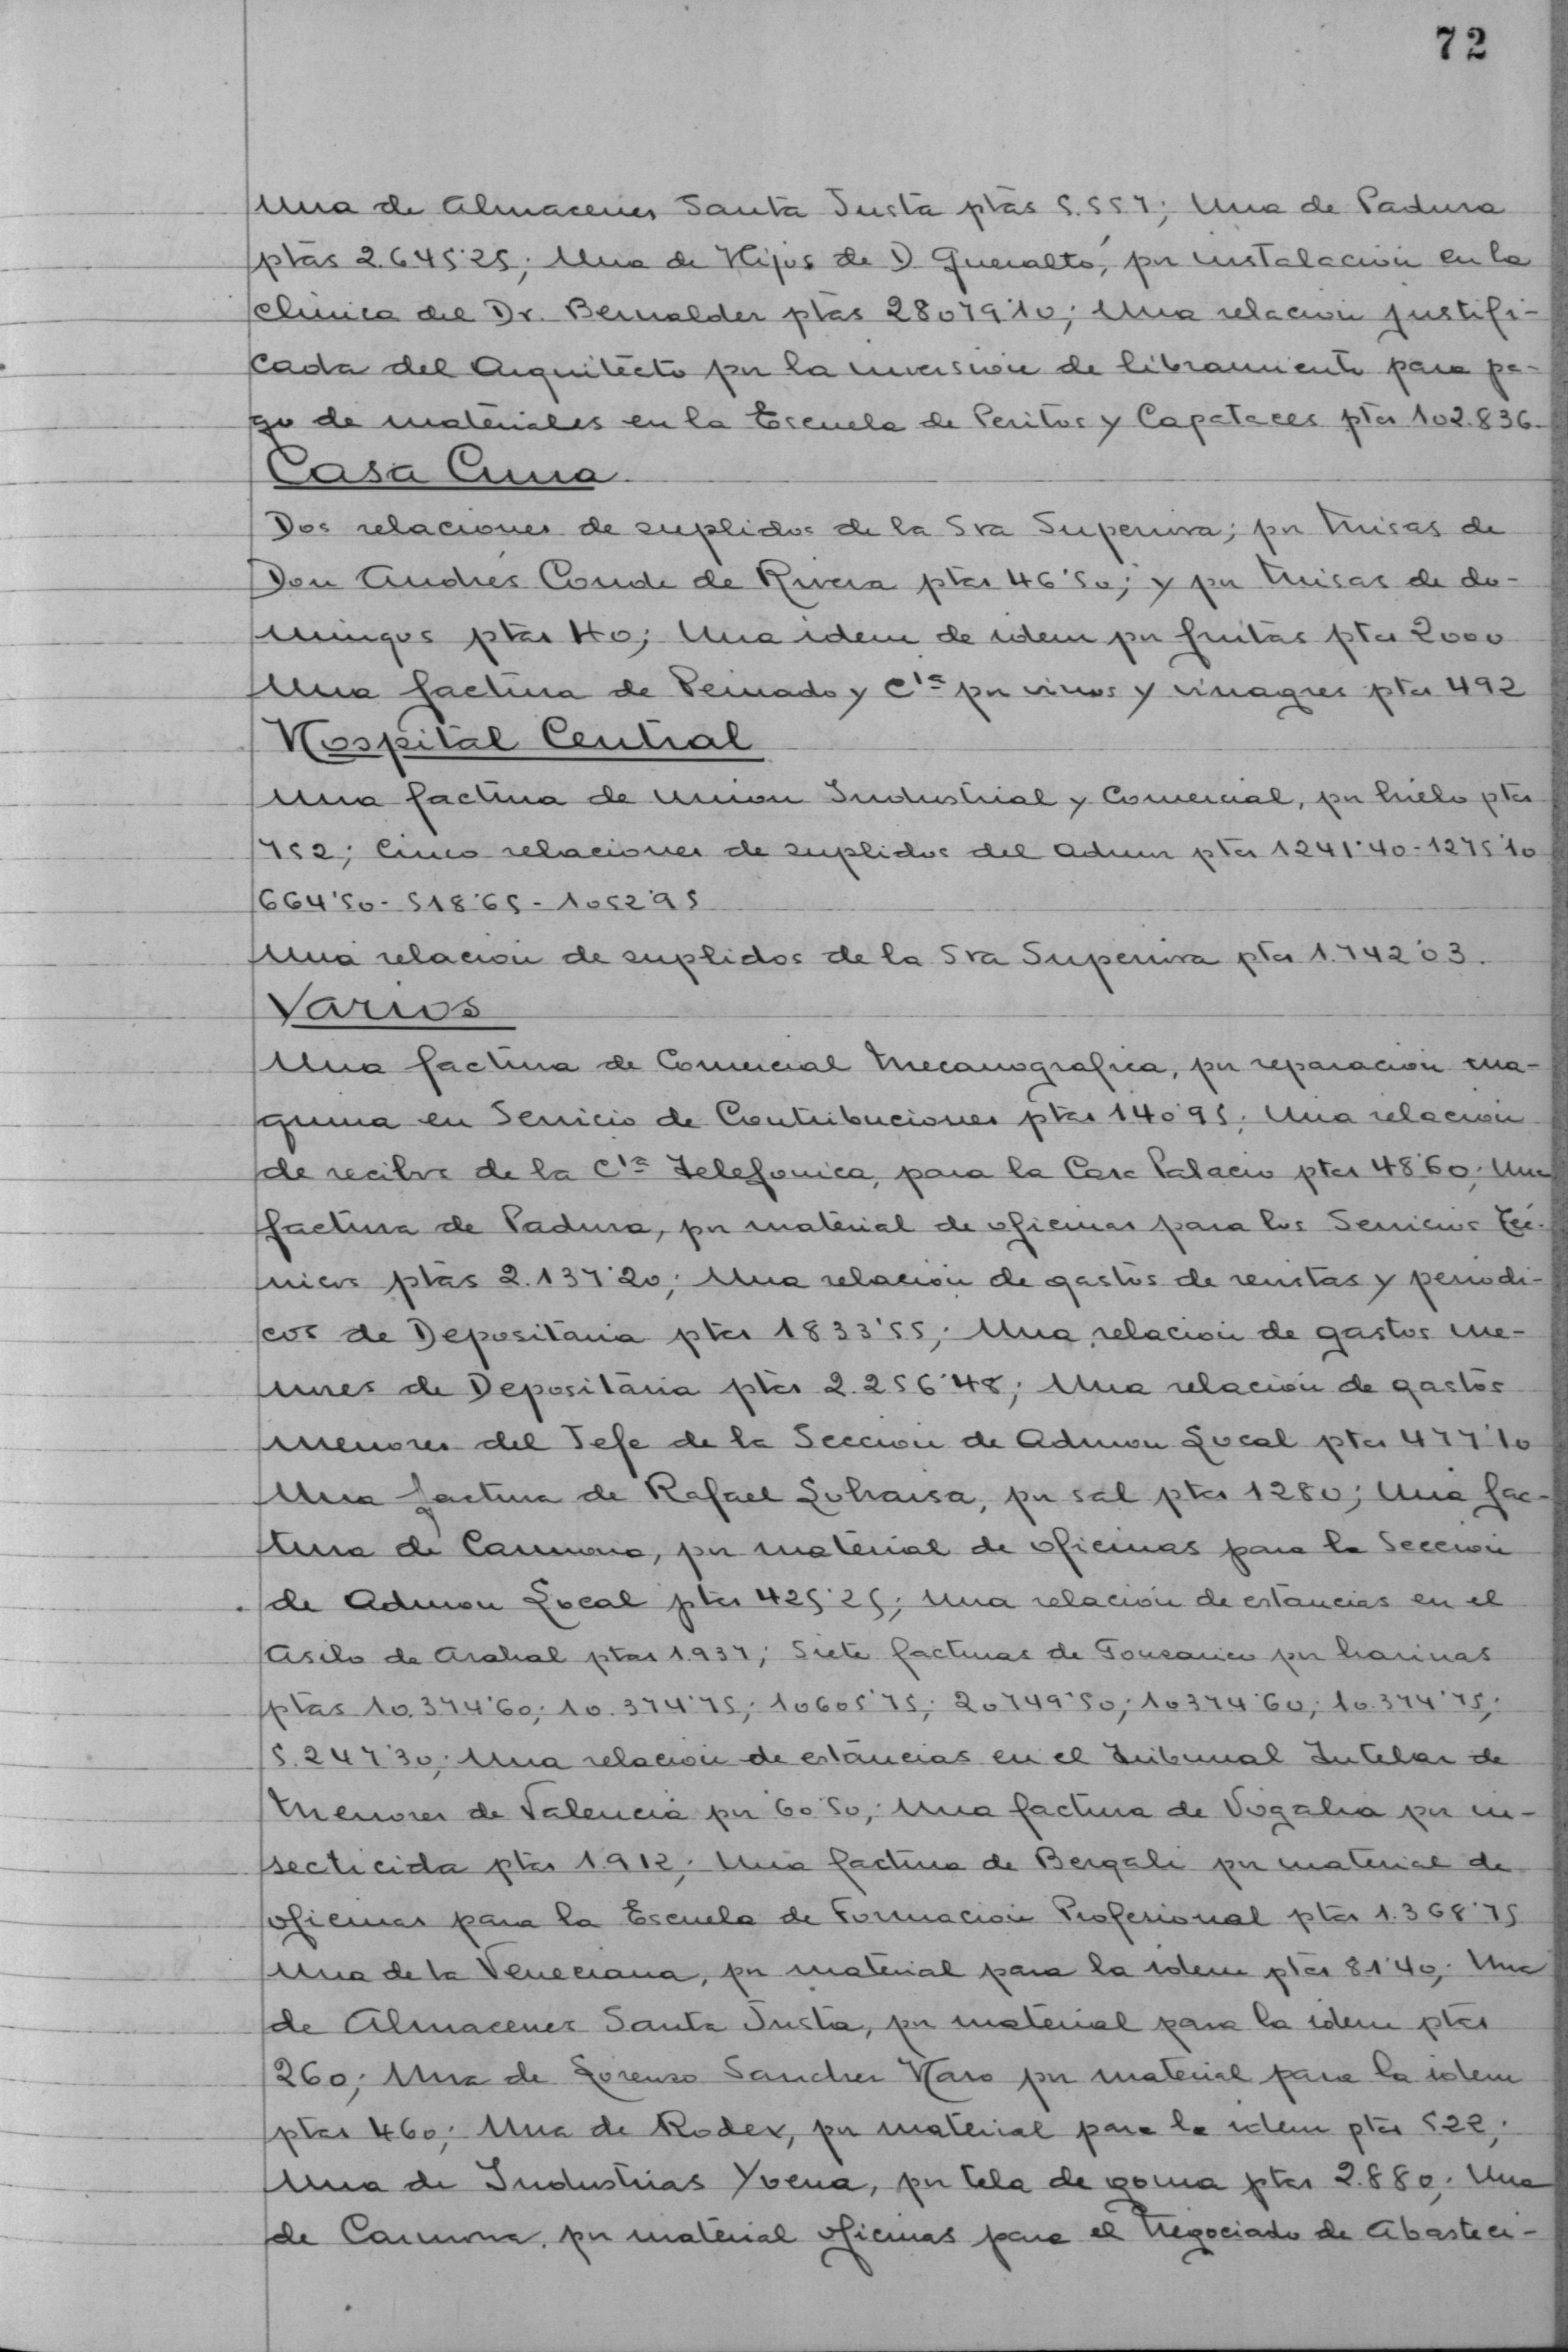 72
Una de Almacenes Santa Justa ptas 5.557; Una de Padura
ptas 2.645'25; Una de Hijos de D Queraltó, por instalación en la
clinica del Dr. Bernalder ptas 28079'10; Una relación justifi-
cada del Arquitecto por la inversión de libramiento para pa-
go de materiales en la Escuela de Peritos y Capataces ptas 102.836.
Casa Cuna
Dos relaciones de suplidos de la Sra Superiora; por Misas de
Don Andrés Conde de Rivera ptas 46'50; y por Misas de do-
mingos ptas 40; Una idem de idem por frutas ptas 2000
Una factura de Peinado y Cia por vinos y vinagres ptas 492
Hospital Central
Una factura de Union Industrial y Comercial, por hielo ptas
752; Cinco relaciones de suplidos del Admor ptas 1241'40-1275'10
664'50-518'65-1052'95
Una relación de suplidos de la Sra Superiora ptas 1.742'03.
Varios
Una factura de Comercial Mecanografica, por reparación ma-
quina en Servicio de Contribuciones ptas 140'95; Una relación
de recibos de la Cia Telefonica, para la Casa Palacio ptas 48'60; Una
factura de Padura, por material de oficinas para los Servicios Téc-
nicos ptas 2.137'20; Una relación de gastos de revistas y periodi-
cos de Depositaria ptas 1833'55; Una relación de gastos me-
nores de Depositaria ptas 2.256'48; Una relación de gastos
menores del Jefe de la Sección de Admon Local ptas 477'10
Una factura de Rafael por sal ptas 1280; Una fac-
tura de Carmona, por material de oficinas para la Sección
de Admon Local ptas 425'25; Una relación de estancias en el
Asilo de Arahal ptas 1.937; Siete facturas de por harinas
ptas 10.374'60; 10.374'75; 10605'75; 20749'50; 10374'60; 10.374'75;
5.247'30; Una relación de estancias en el Tribunal Tutelar de
Menores de Valencia por 60'50; Una factura de por in-
secticida ptas 1.912; Una factura de Bergali por material de
oficinas para la Escuela de Formación Profesional ptas 1.368'75
Una de la Veneciana, por material para la idem ptas 81'40; Una
de Almacenes Santa Justa, por material para la idem ptas
260; Una de Lorenzo Sanchez Haro por material para la idem
ptas 460; Una de Rodex, por material para la idem ptas 522;
Una de Industrias Ybena, por tela de goma ptas 2.880; Una
de Carmona, por material oficinas para el Negociado de Abasteci-